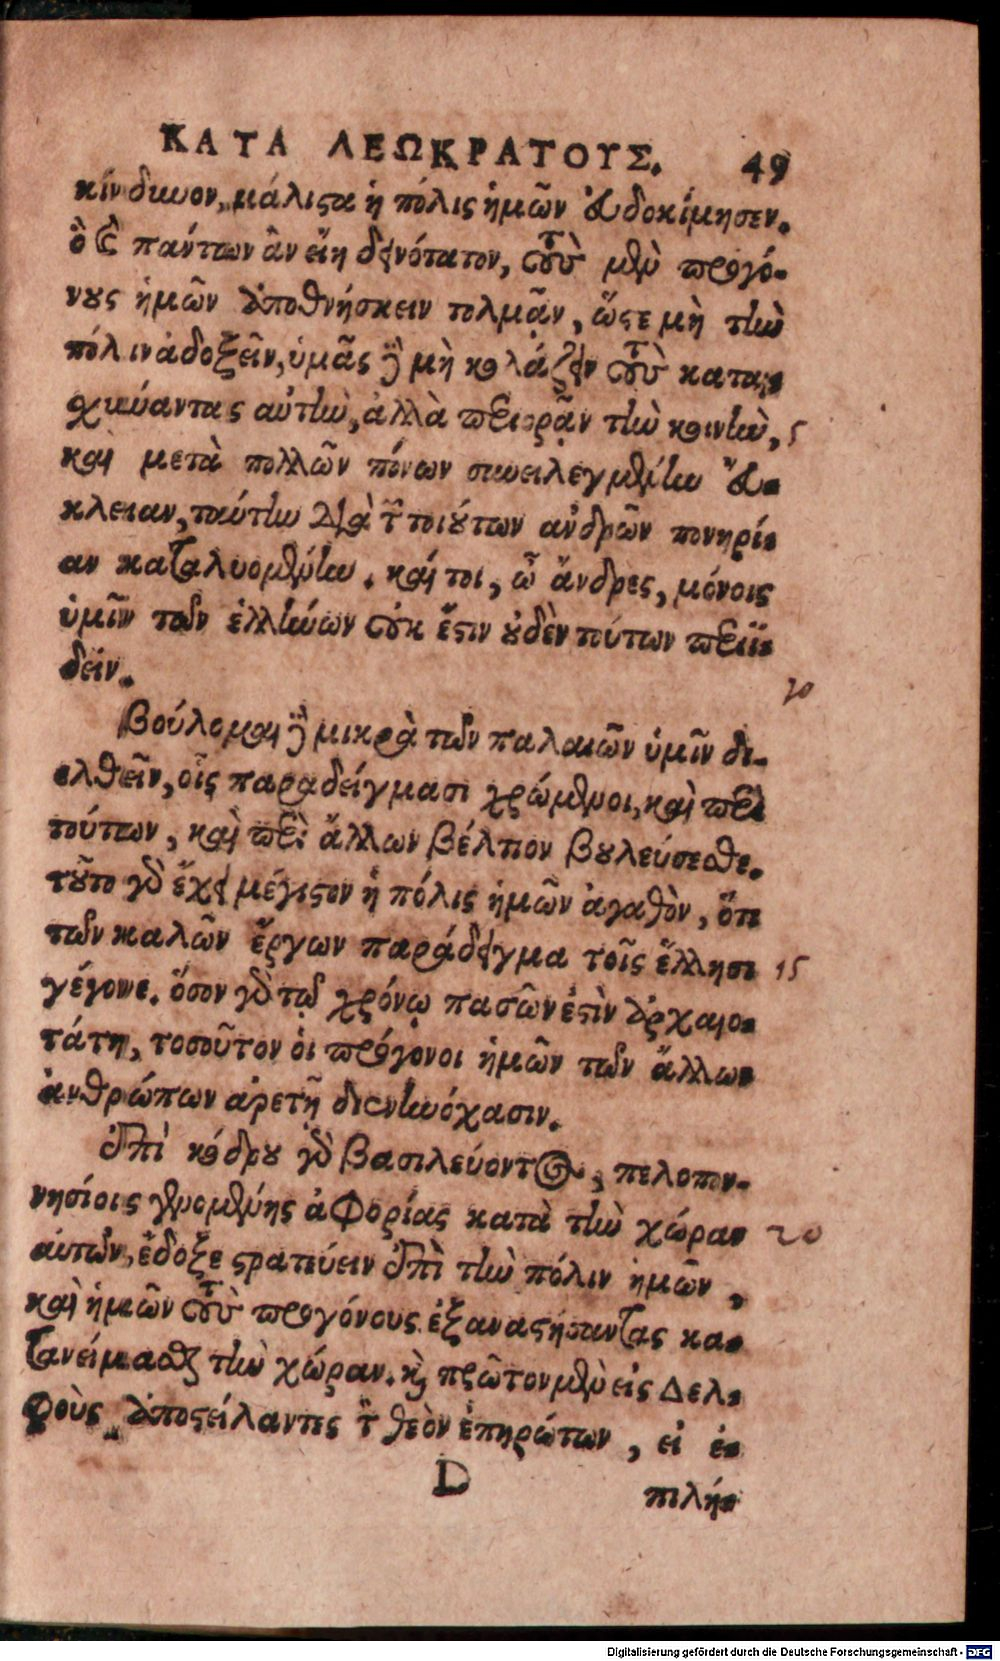 ΚΑΤΑ ΛΕΩΚΡΑΤΟΥΣ. 49
κίνδυνον, μάλιστα ἡ πόλις ἡμῶν εὐδοκίμησεν.
ὃ καὶ πάντων ἂν εἴη δεινότατον, τοὺς μὲν προγό-
νους ἡμῶν ἀποθνήσκειν τολμᾷν, ὥστε μὴ τὴν
πόλιν ἀδοξεῖν, ὑμᾶς δὲ μὴ κολάζειν τοὺς καται-
σχύναντας αὐτὴν, ἀλλὰ περιορᾷν τὴν κοινὴν, 5
καὶ μετὰ πολλῶν πόνων συνειλεγμένην εὔ-
κλειαν, ταύτην διὰ τὴν τοιούτων ἀνδρῶν πονηρί-
αν καταλυομένην. καί τοι, ὦ ἄνδρες, μόνοις
ὑμῖν τῶν ἑλλήνων οὐκ ἔστιν οὐδὲν τούτων περιϊ-
δεῖν. 10
Βούλομαι δὲ μικρὰ τῶν παλαιῶν ὑμῖν δι-
ελθεῖν, οἷς παραδείγμασι χρώμενοι, καὶ περὶ
τούτων, καὶ περὶ ἄλλων βέλτιον βουλεύσεσθε.
τοῦτο γὰρ ἔχει μέγιστον ἡ πόλις ἡμῶν ἀγαθὸν, ὅτι
τῶν καλῶν ἔργων παράδειγμα τοῖς ἕλλησι 15
γέγονε. ὅσον γὰρ τῷ χρόνῳ πασῶν ἐστὶν ἀρχαιο-
τάτη, τοσοῦτον οἱ πρόγονοι ἡμῶν τῶν ἄλλων
ἀνθρώπων ἀρετῇ διενηνόχασιν.
Ἐπὶ κόδρου γὰρ βασιλεύοντος, πελοπον-
νησίοις γενομένης ἀφορίας κατὰ τὴν χώραν 20
αὐτῶν, ἔδοξε στρατεύειν ἐπὶ τὴν πόλιν ἡμῶν,
καὶ ἡμῶν τοὺς προγόνους ἐξαναστήσαντας κα-
τανείμασθαι τὴν χώραν. καὶ πρῶτον μὲν εἰς Δελ-
φοὺς ἀποστείλαντες τὸν θεὸν ἐπηρώτων, εἰ ἐ-
D πιλή-
Digitalisierung gefördert durch die Deutsche Forschungsgemeinschaft - DFG